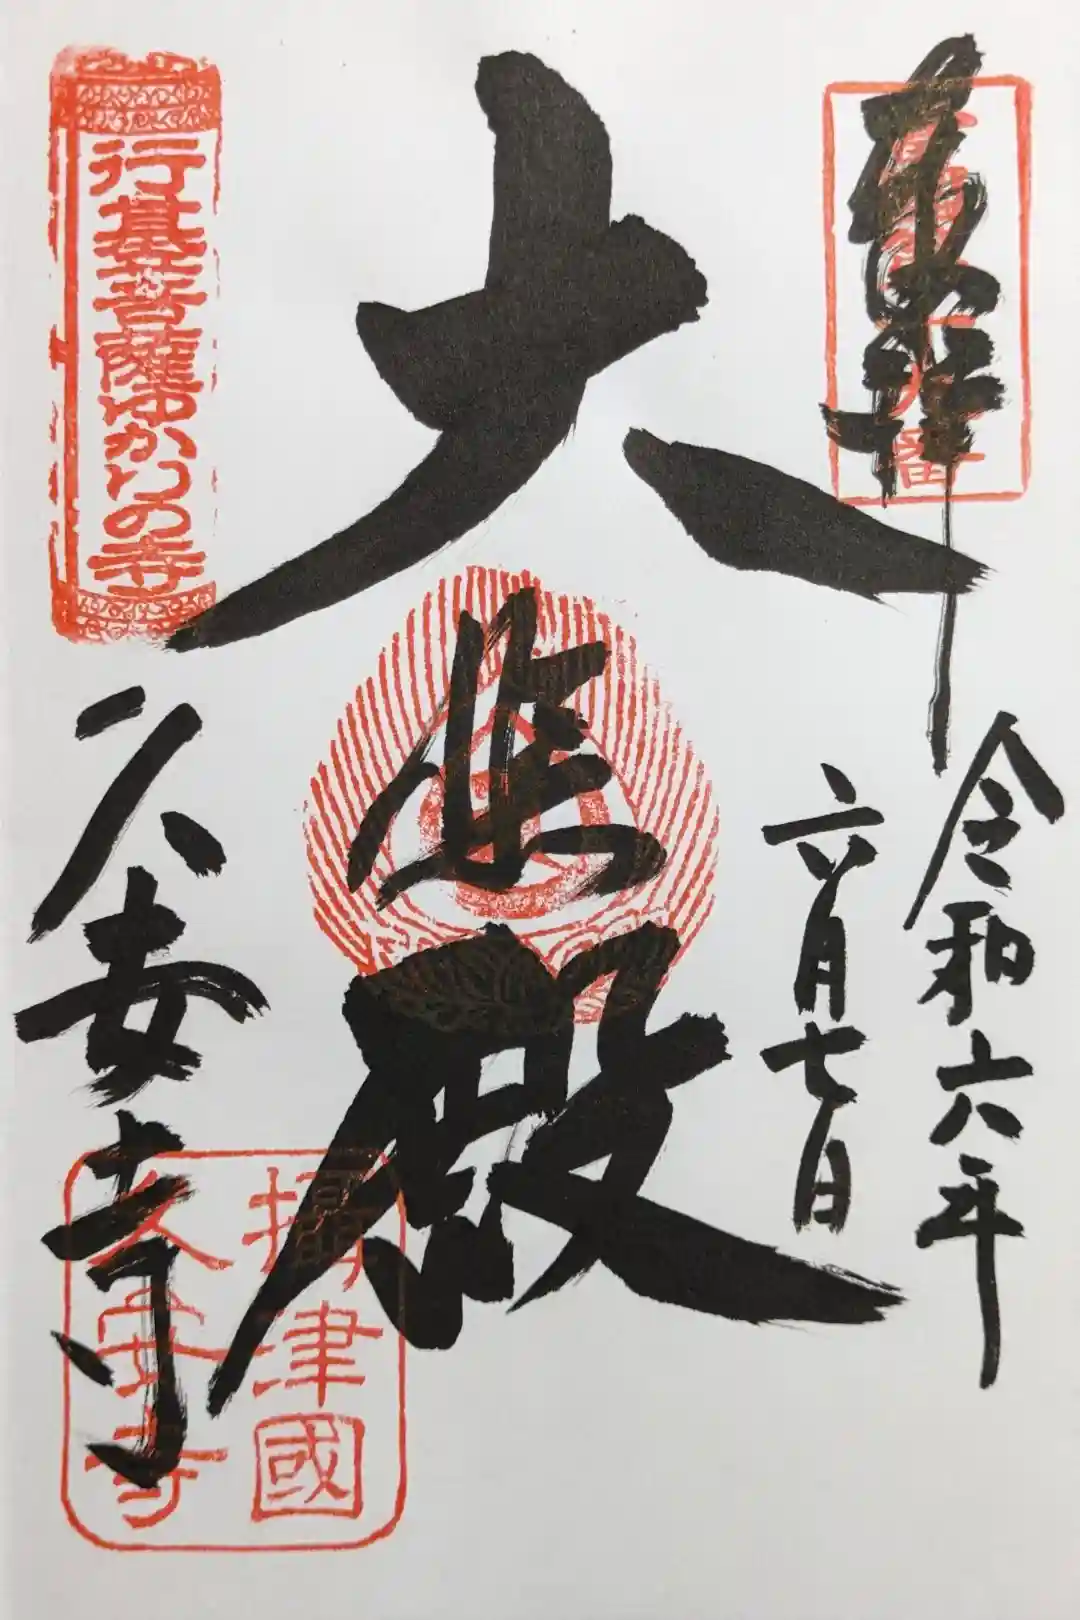 奉拝
令和六年
六月七日
大悲殿
久安寺
行基菩薩ゆかりの寺
攝津國
久安寺